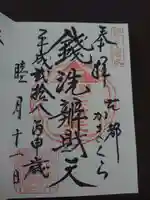 奉拝
古都
かまくら
銭洗辨財天
平成弐拾八丙申歳
睦月十一日